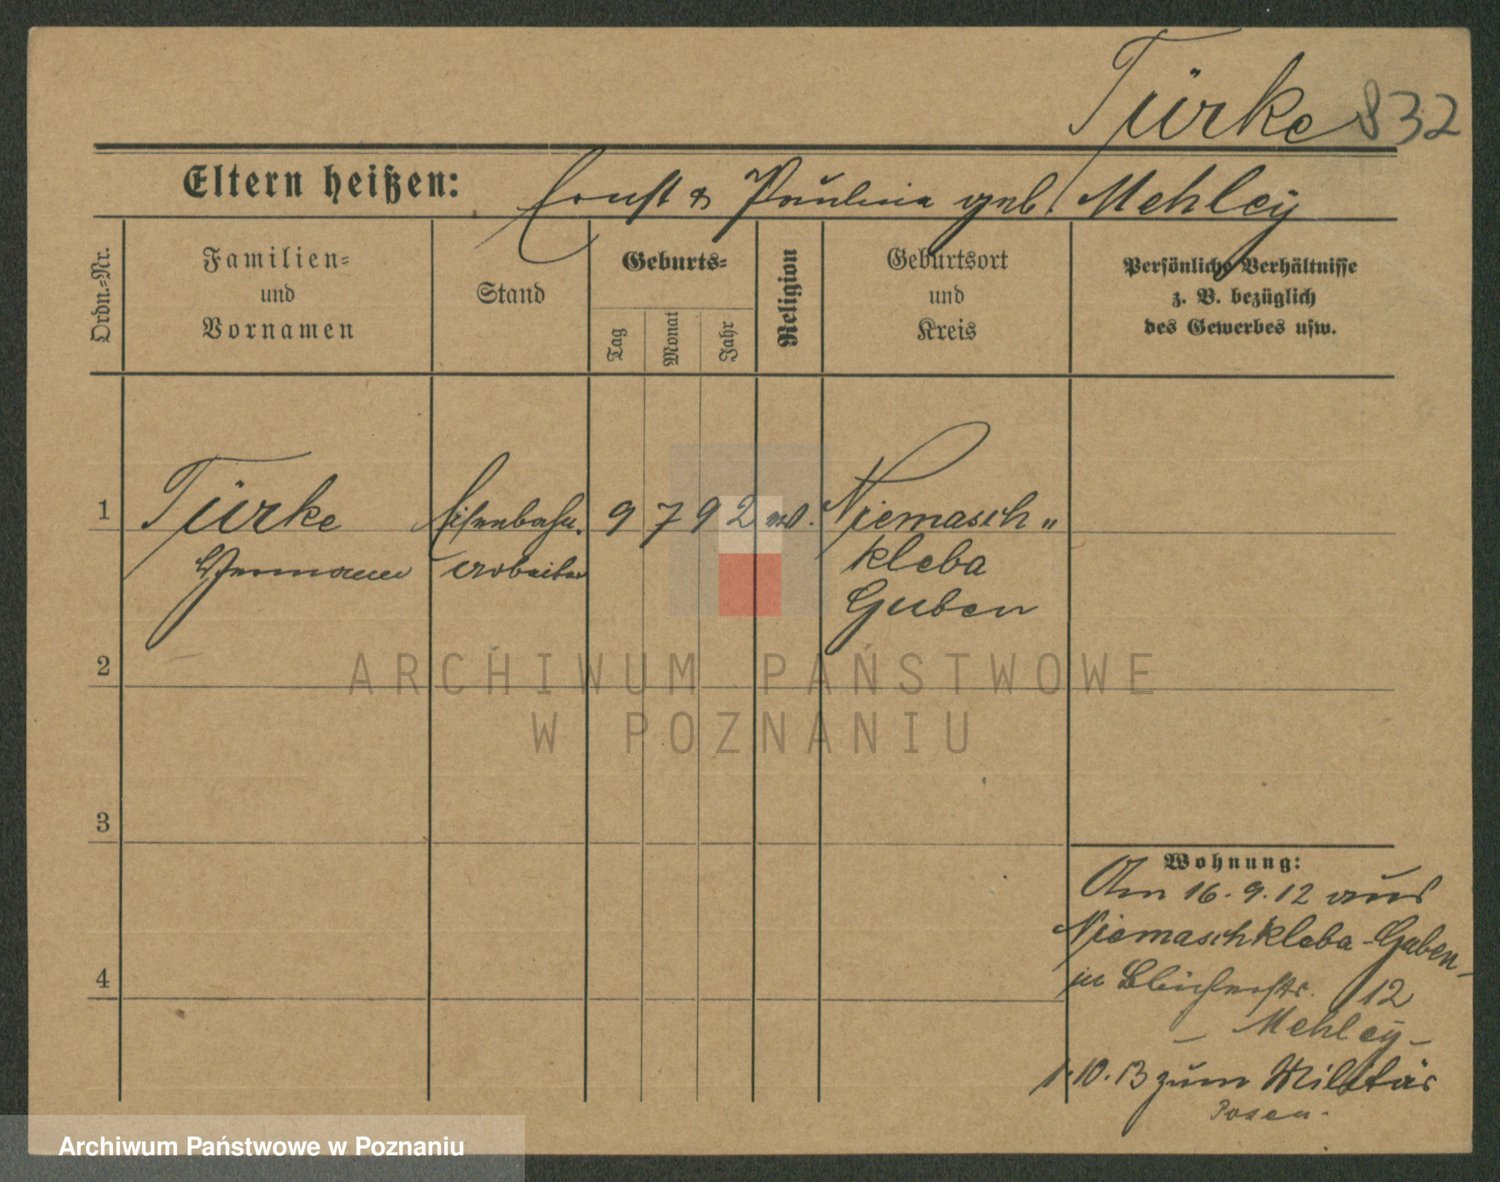 Türke 832
Eltern heißen: Ernst & Paulina geb. Mehley
Ordn.-Nr.
Familien-
und
Vornamen
Stand
Geburts-
Tag
Monat
Jahr
Religion
Geburtsort
und
Kreis
Persönliche Verhältnisse
z. B. bezüglich
des Gewerbes usw.
1 Türke Eisenbahn- 9 7 92 ev. Niemasch"
Hermann arbeiter kleba
Guben
2
3
4
ARCHIWUM PAŃSTWOWE
W POZNANIU
Wohnung:
Am 16.9.12 aus
Niemaschkleba-Guben-
in Blücherstr. 12
- Mehley -
1.10.13 zum Militär
Posen.
Archiwum Państwowe w Poznaniu